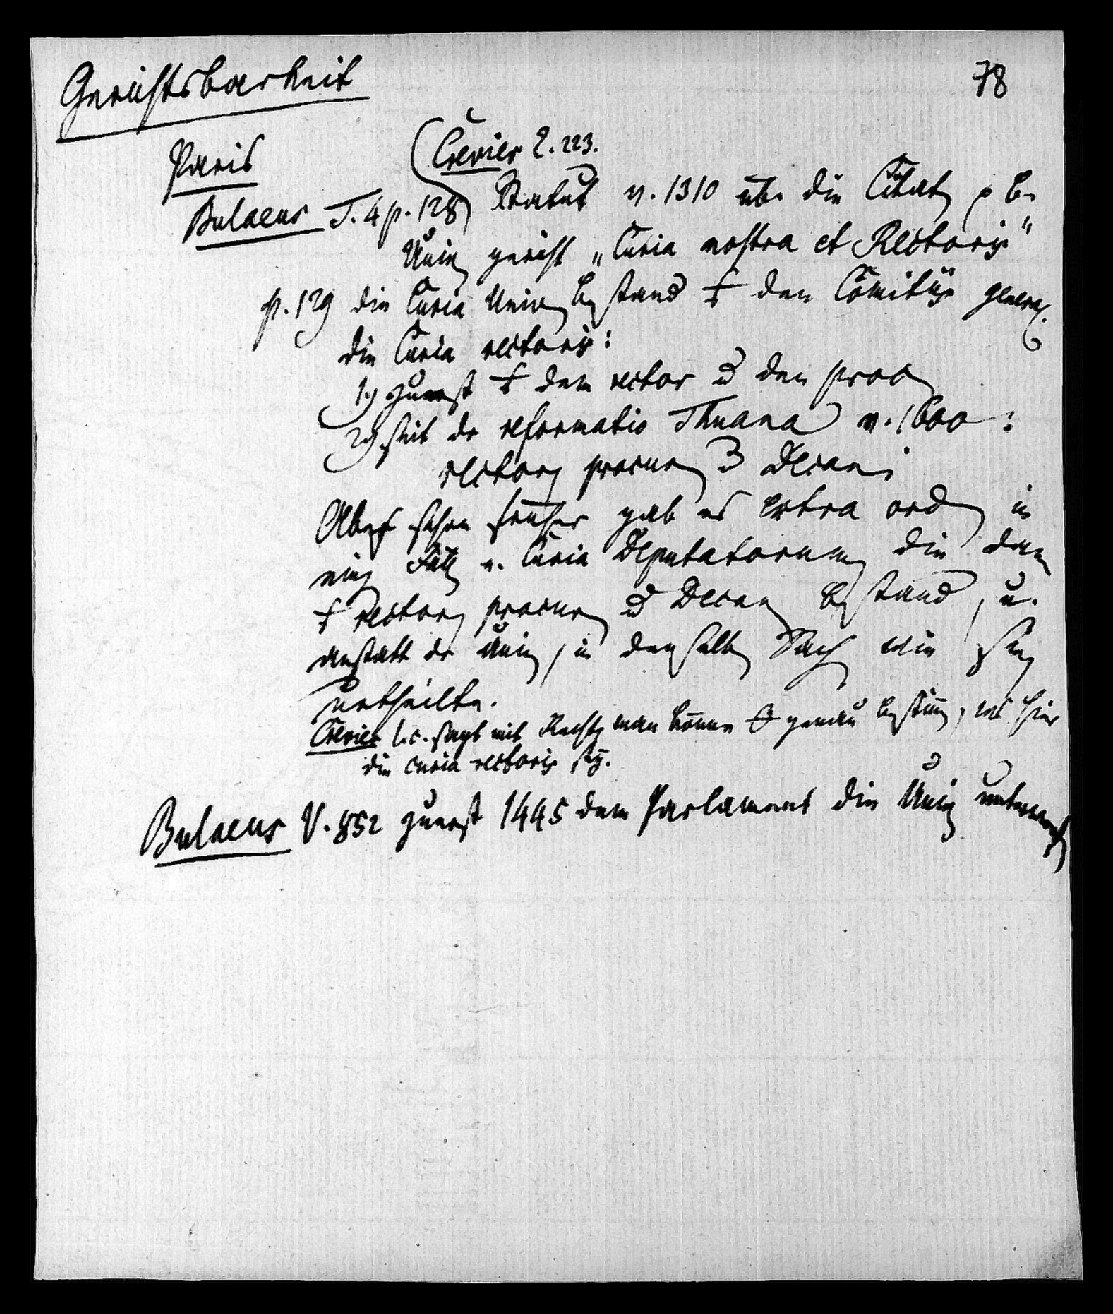 Gerichtsbarkeit
78
Paris
(Crevier 2. 223.
Bulaeus T. 4 p. 128) Statut v. 1310 über die Citat
Univ gericht „Curia nostra et Rectoris“
p. 129 die Curia Univ bestand den Comitiis general.
die Curia rectoris:
1.) zuerst dem rector u den proc
2.) seit der reformatio Thuana v. 1600:
rector procur 3 Decani
Aber schon früher gab es extra ord in
einig Fäll e. Curia Deputatorum die dann
rector procur u Decan bestand, u.
anstatt der Univ, in denselb Sach wie sie
urtheilte.
Crevier l. c. sagt mit Recht, man könne genau bestim, was hier
die curia rectoris sey.
Bulaeus V. 852 zuerst 1445 dem Parlament die Univ